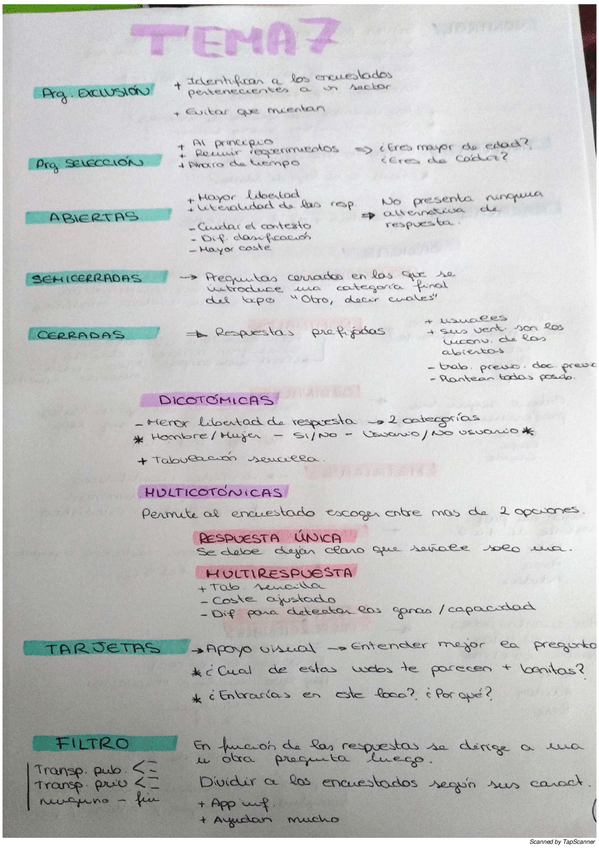 TEMA 7
Arg. EXCLUSIÓN
+ Identifican a los encuestados
pertenecientes a un sector
+ Evitar que mientan
Arg SELECCIÓN
+ Al principio
+ Reunir requerimientos → ¿Eres mayor de edad?
+ Ahorro de tiempo ¿Eres de Cádiz?
ABIERTAS
+ Mayor libertad
+ Literalidad de las resp
- Cuidar el contexto
- Dif. clasificación
- Mayor coste
⇒ No presenta ninguna
alternativa de
respuesta.
SEMICERRADAS
→ Preguntas cerradas en las que se
introduce una categoría final
del tipo "Otro, decir cuales"
CERRADAS
→ Respuestas prefijadas
+ usuales
+ sus vent. son los
inconv. de las
abiertas
- trab. previo. doc. previa
- Plantear todas posib.
DICOTÓMICAS
- Menor libertad de respuesta → 2 categorías
* Hombre/Mujer - SI/NO - Usuario/No usuario *
+ Tabulación sencilla.
MULTICOTÓNICAS
Permite al encuestado escoger entre mas de 2 opciones.
RESPUESTA ÚNICA
Se debe dejar claro que señale solo una.
MULTIRESPUESTA
+ Tab. sencilla
- Coste ajustado
- Dif para detectar las ganas/capacidad
TARJETAS
→ Apoyo visual → Entender mejor la pregunta
* ¿Cual de estas webs te parecen + bonitas?
* ¿Entrarías en este loco? ¿Por qué?
FILTRO
En función de las respuestas se dirige a una
u otra pregunta luego.
Transp. pub. <
Transp. priv <
ninguno - fin
Dividir a los encuestados según sus caract.
+ App inf.
+ Ayudan mucho
Scanned by TapScanner